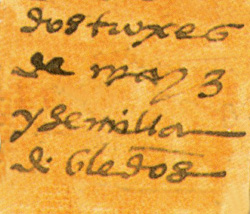 dos troxes
de mayz
y semilla
de bledos